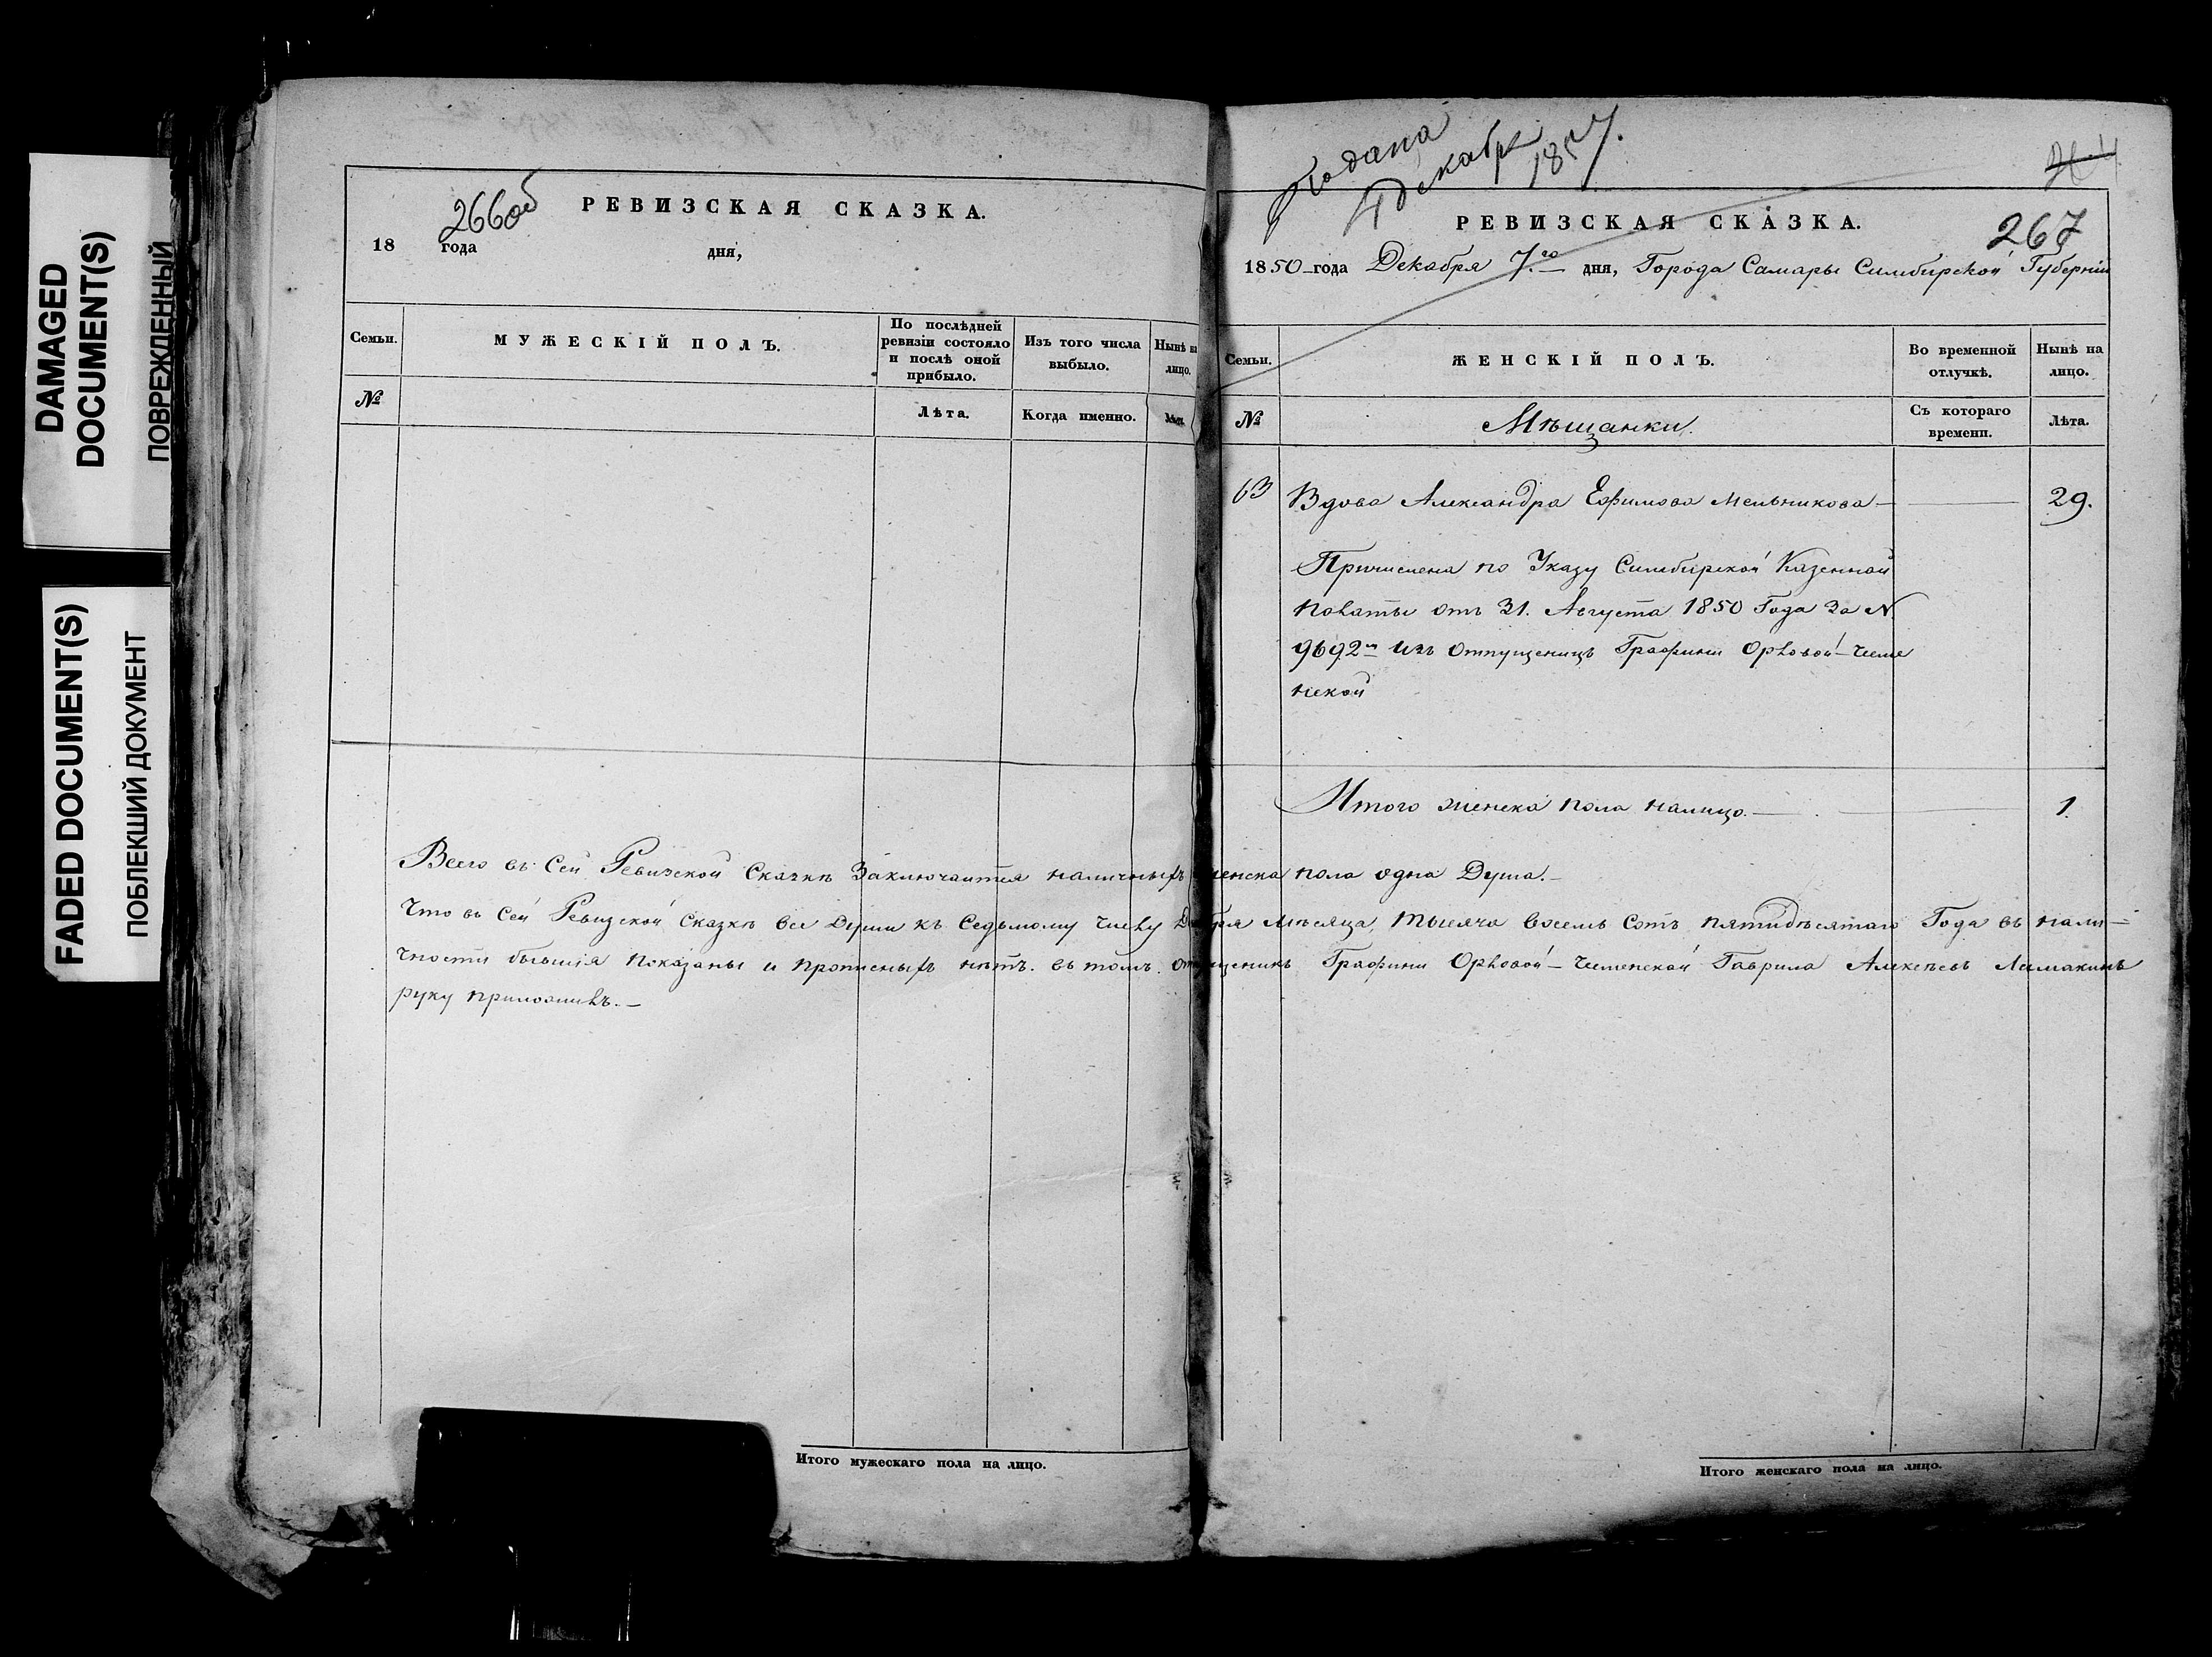 DAMAGED
DOCUMENT(S)
ПОВРЕЖДЕННЫЙ
FADED DOCUMENT(S)
ПОБЛЕКШИЙ ДОКУМЕНТ
266об
РЕВИЗСКАЯ СКАЗКА.
18 года дня,
Семьи.
МУЖЕСКІЙ ПОЛЪ.
По послѣдней
ревизіи состояло
и послѣ оной
прибыло.
Изъ того числа
выбыло.
Нынѣ на
лицо.
№
Лѣта.
Когда именно.
Лѣта.
Подана
4 декабря
РЕВИЗСКАЯ СКАЗКА.
267
1850 года Декабря 7.го дня, Города Самары Симбирской Губерніи
Семьи.
ЖЕНСКІЙ ПОЛЪ.
Во временной
отлучкѣ.
Нынѣ на
лицо.
№
Мѣщанки.
Съ котораго
времени.
Лѣта.
63 Вдова Александра Ефимова Мельникова — 29.
Причислена по Указу Симбирской Казенной
Палаты отъ 31. Августа 1850 Года За N.
9692м Изъ Отпущеницъ Графини Орловой-Чесме
нской
Итого женска пола налицо. — 1.
Всего въ Сей Ревизской Сказкѣ Заключаится наличныхъ женска пола одна Душа.—
Что въ Сей Ревизской Сказкѣ все Души къ Седьмому Числу Декабря Мѣсяца, Тысяча восемь Сотъ пятидѣсятаго Года въ нали-
чности бывшія показаны и прописныхъ нѣтъ. въ томъ. Отпущеникъ Графини Орловой-Чесменской Гаврила Алексѣевъ
руку приложилъ.—
Итого мужескаго пола на лицо.
Итого женскаго пола на лицо.